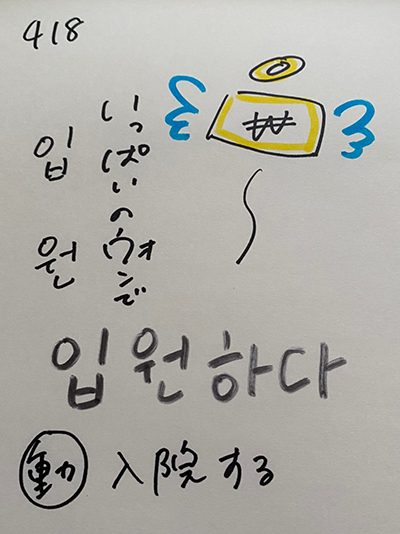 418
₩
いっぱいのウォンで
입원
입원하다
動 入院する